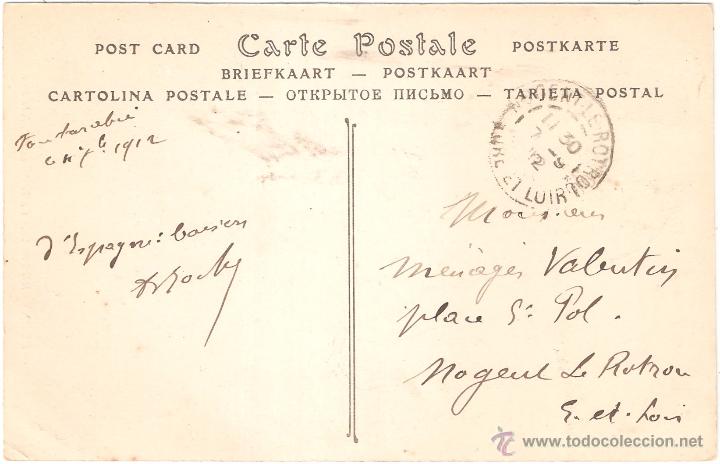 POST CARD Carte Postale POSTKARTE
BRIEFKAART — POSTKAART
CARTOLINA POSTALE — ОТКРЫТОЕ ПИСЬМО — TARJETA POSTAL
NOGENT LE ROTROU
11 30
7 - 9
12
EURE ET LOIR
Fontarabie
1912
d'Espagne: baisers
Monsieur
Ménager Valentin
place St Pol.
Nogent Le Rotrou
E.-et-Loir
© www.todocoleccion.net